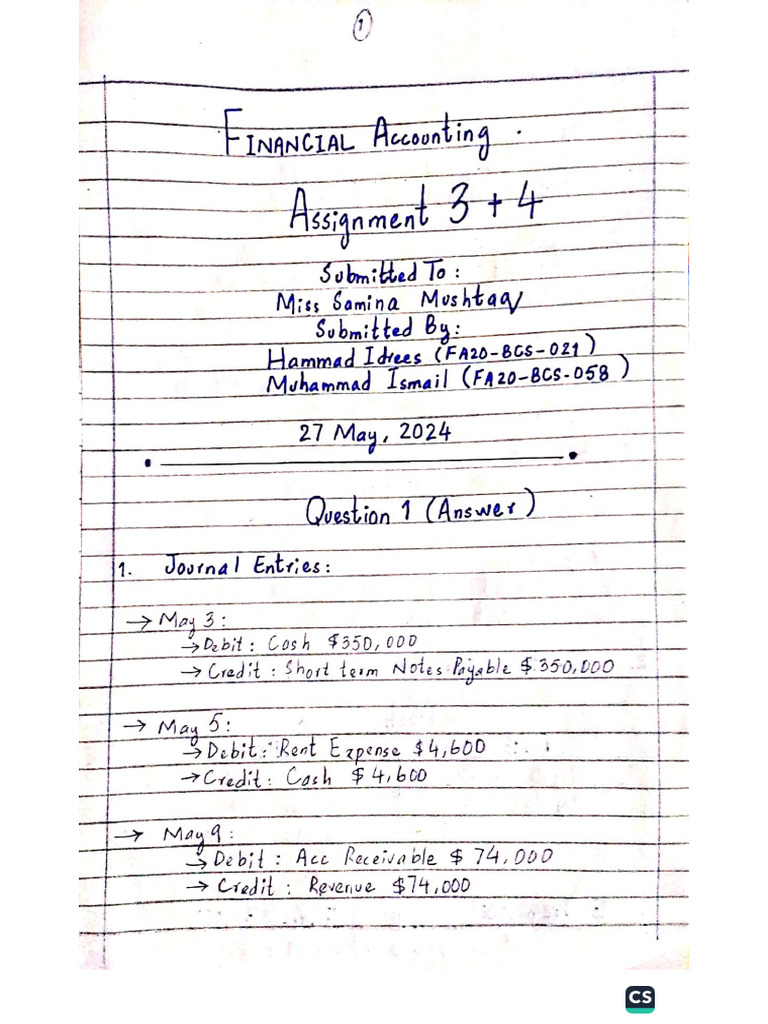 1
FINANCIAL Accounting.
Assignment 3 + 4
Submitted To:
Miss Samina Mushtaq
Submitted By:
Hammad Idrees (FA20-BCS-021)
Muhammad Ismail (FA20-BCS-058)
27 May, 2024
Question 1 (Answer)
1. Journal Entries:
→ May 3:
→ Debit: Cash $350,000
→ Credit: Short term Notes Payable $350,000
→ May 5:
→ Debit: Rent Expense $4,600
→ Credit: Cash $4,600
→ May 9:
→ Debit: Acc Receivable $74,000
→ Credit: Revenue $74,000
CS